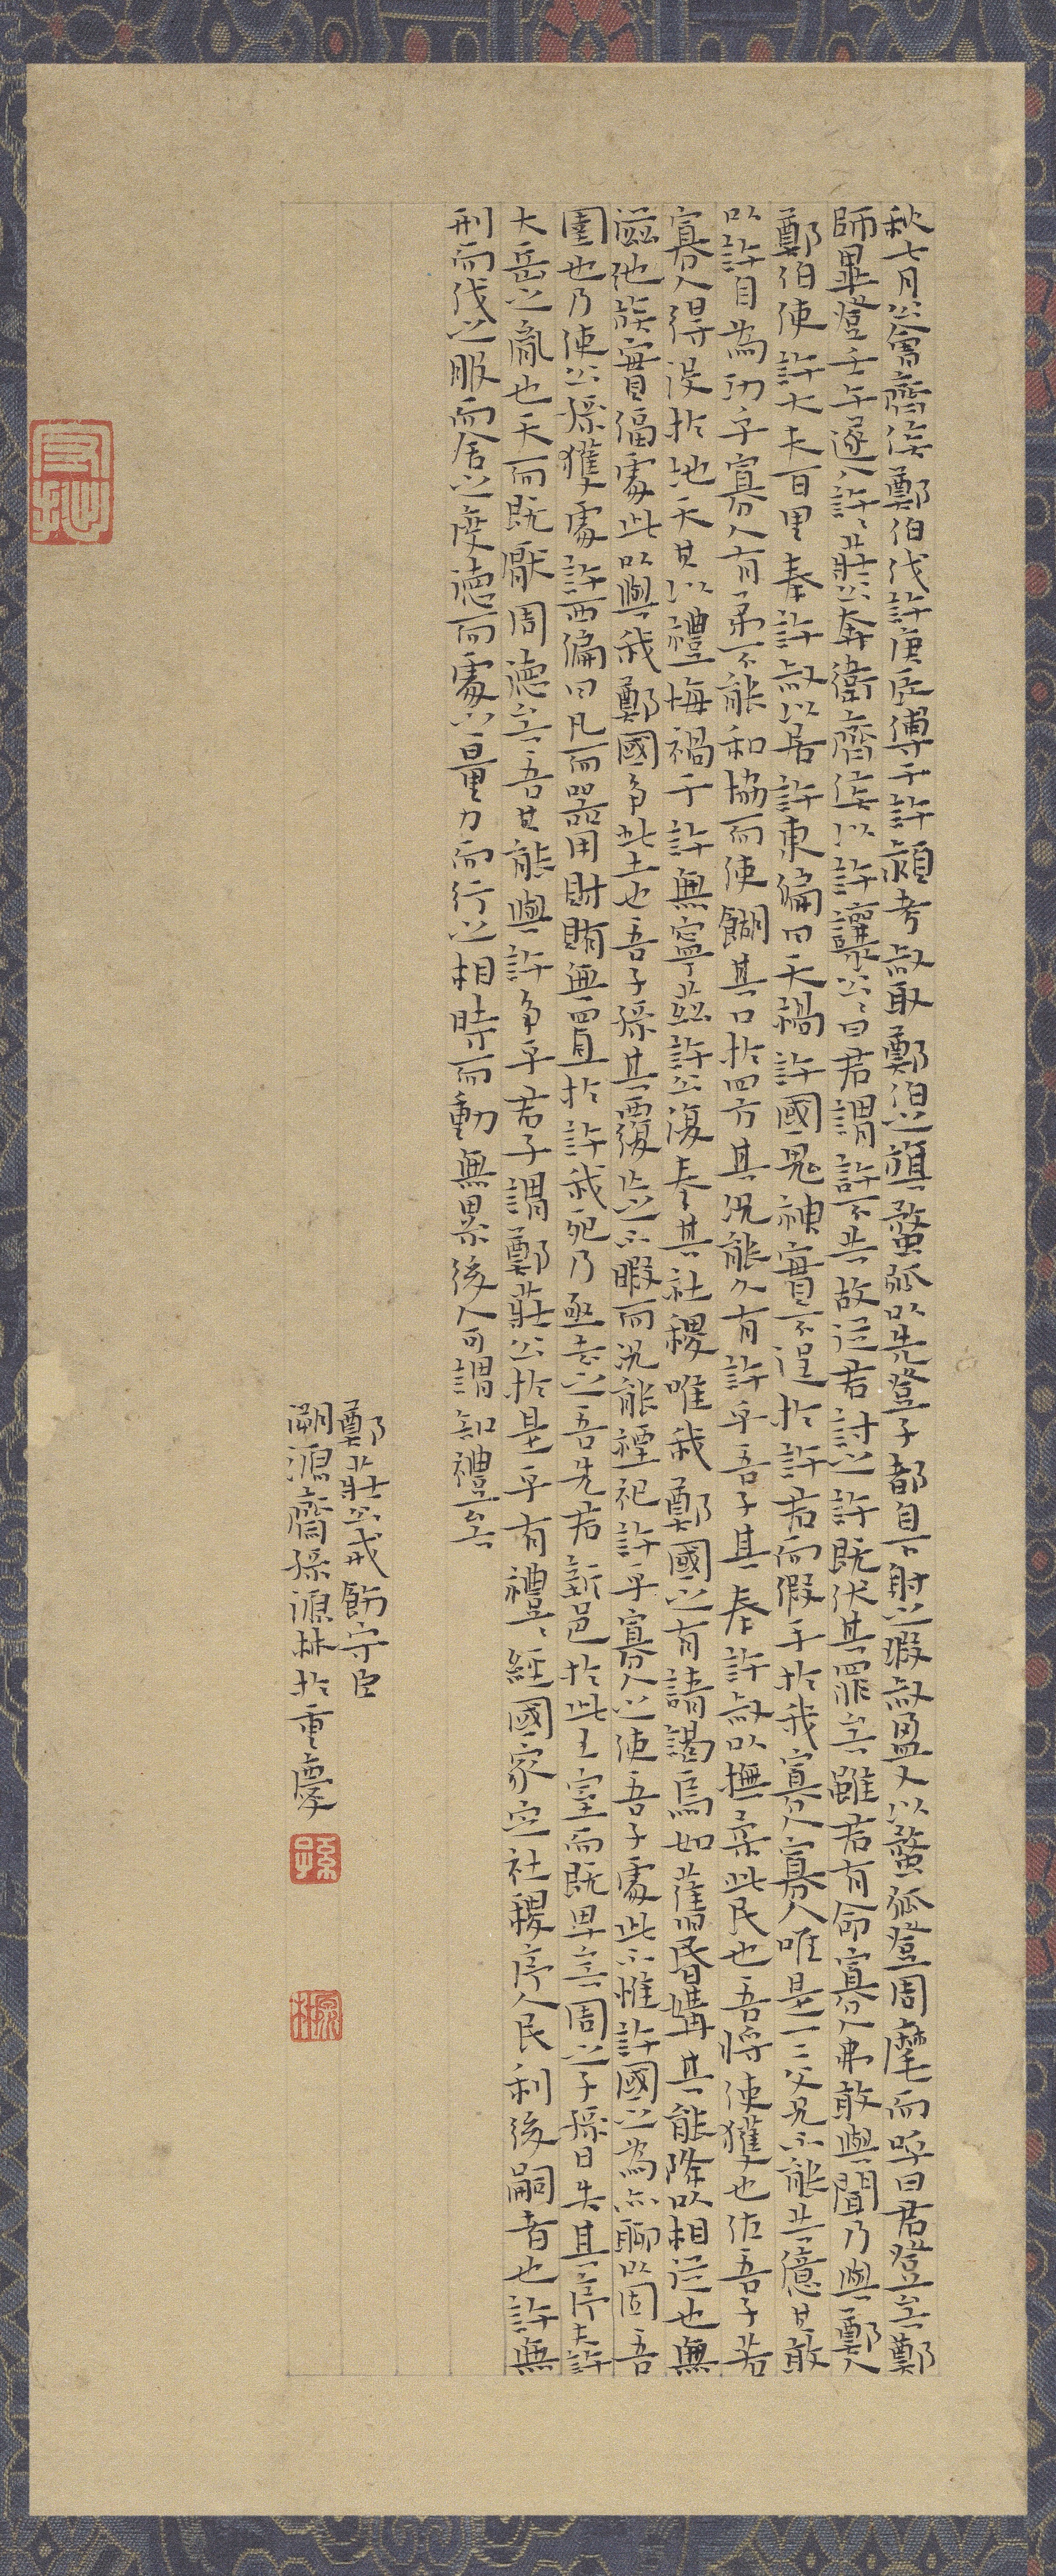 秋七月公會齊侯鄭伯伐許庚辰傅于許潁考叔取鄭伯之旗蝥弧以先登子都自下射之瑕叔盈又以蝥弧登周麾而呼曰君登矣鄭
師畢登壬午遂入許許莊公奔衛齊侯以許讓公公曰君謂許不共故從君討之許既伏其罪矣雖君有命寡人弗敢與聞乃與鄭人
鄭伯使許大夫百里奉許叔以居許東偏曰天禍許國鬼神實不逞於許君而假手於我寡人寡人唯是一二父兄不能共億其敢
以許自為功乎寡人有弟不能和協而使餬其口於四方其況能久有許乎吾子其奉許叔以撫柔此民也吾將使獲也佐吾子若
寡人得沒於地天其以禮悔禍于許無寧茲許公復奉其社稷唯我鄭國之有請謁焉如舊昏媾其能降以相從也無
滋他族實偪處此以與我鄭國爭此土也吾子孫其覆亡之不暇而況能禋祀許乎寡人之使吾子處此不惟許國之為亦聊以固吾
圉也乃使公孫獲處許西偏曰凡而器用財賄無寘於許我死乃亟去之吾先君新邑於此王室而既卑矣周之子孫日失其序夫許
大岳之胤也天而既厭周德矣吾其能與許爭乎君子謂鄭莊公於是乎有禮禮經國家定社稷序人民利後嗣者也許無
刑而伐之服而舍之度德而處之量力而行之相時而動無累後人可謂知禮矣
鄭莊公戒飭守臣
嗣鴻齋孫源林於重慶
孫
源林